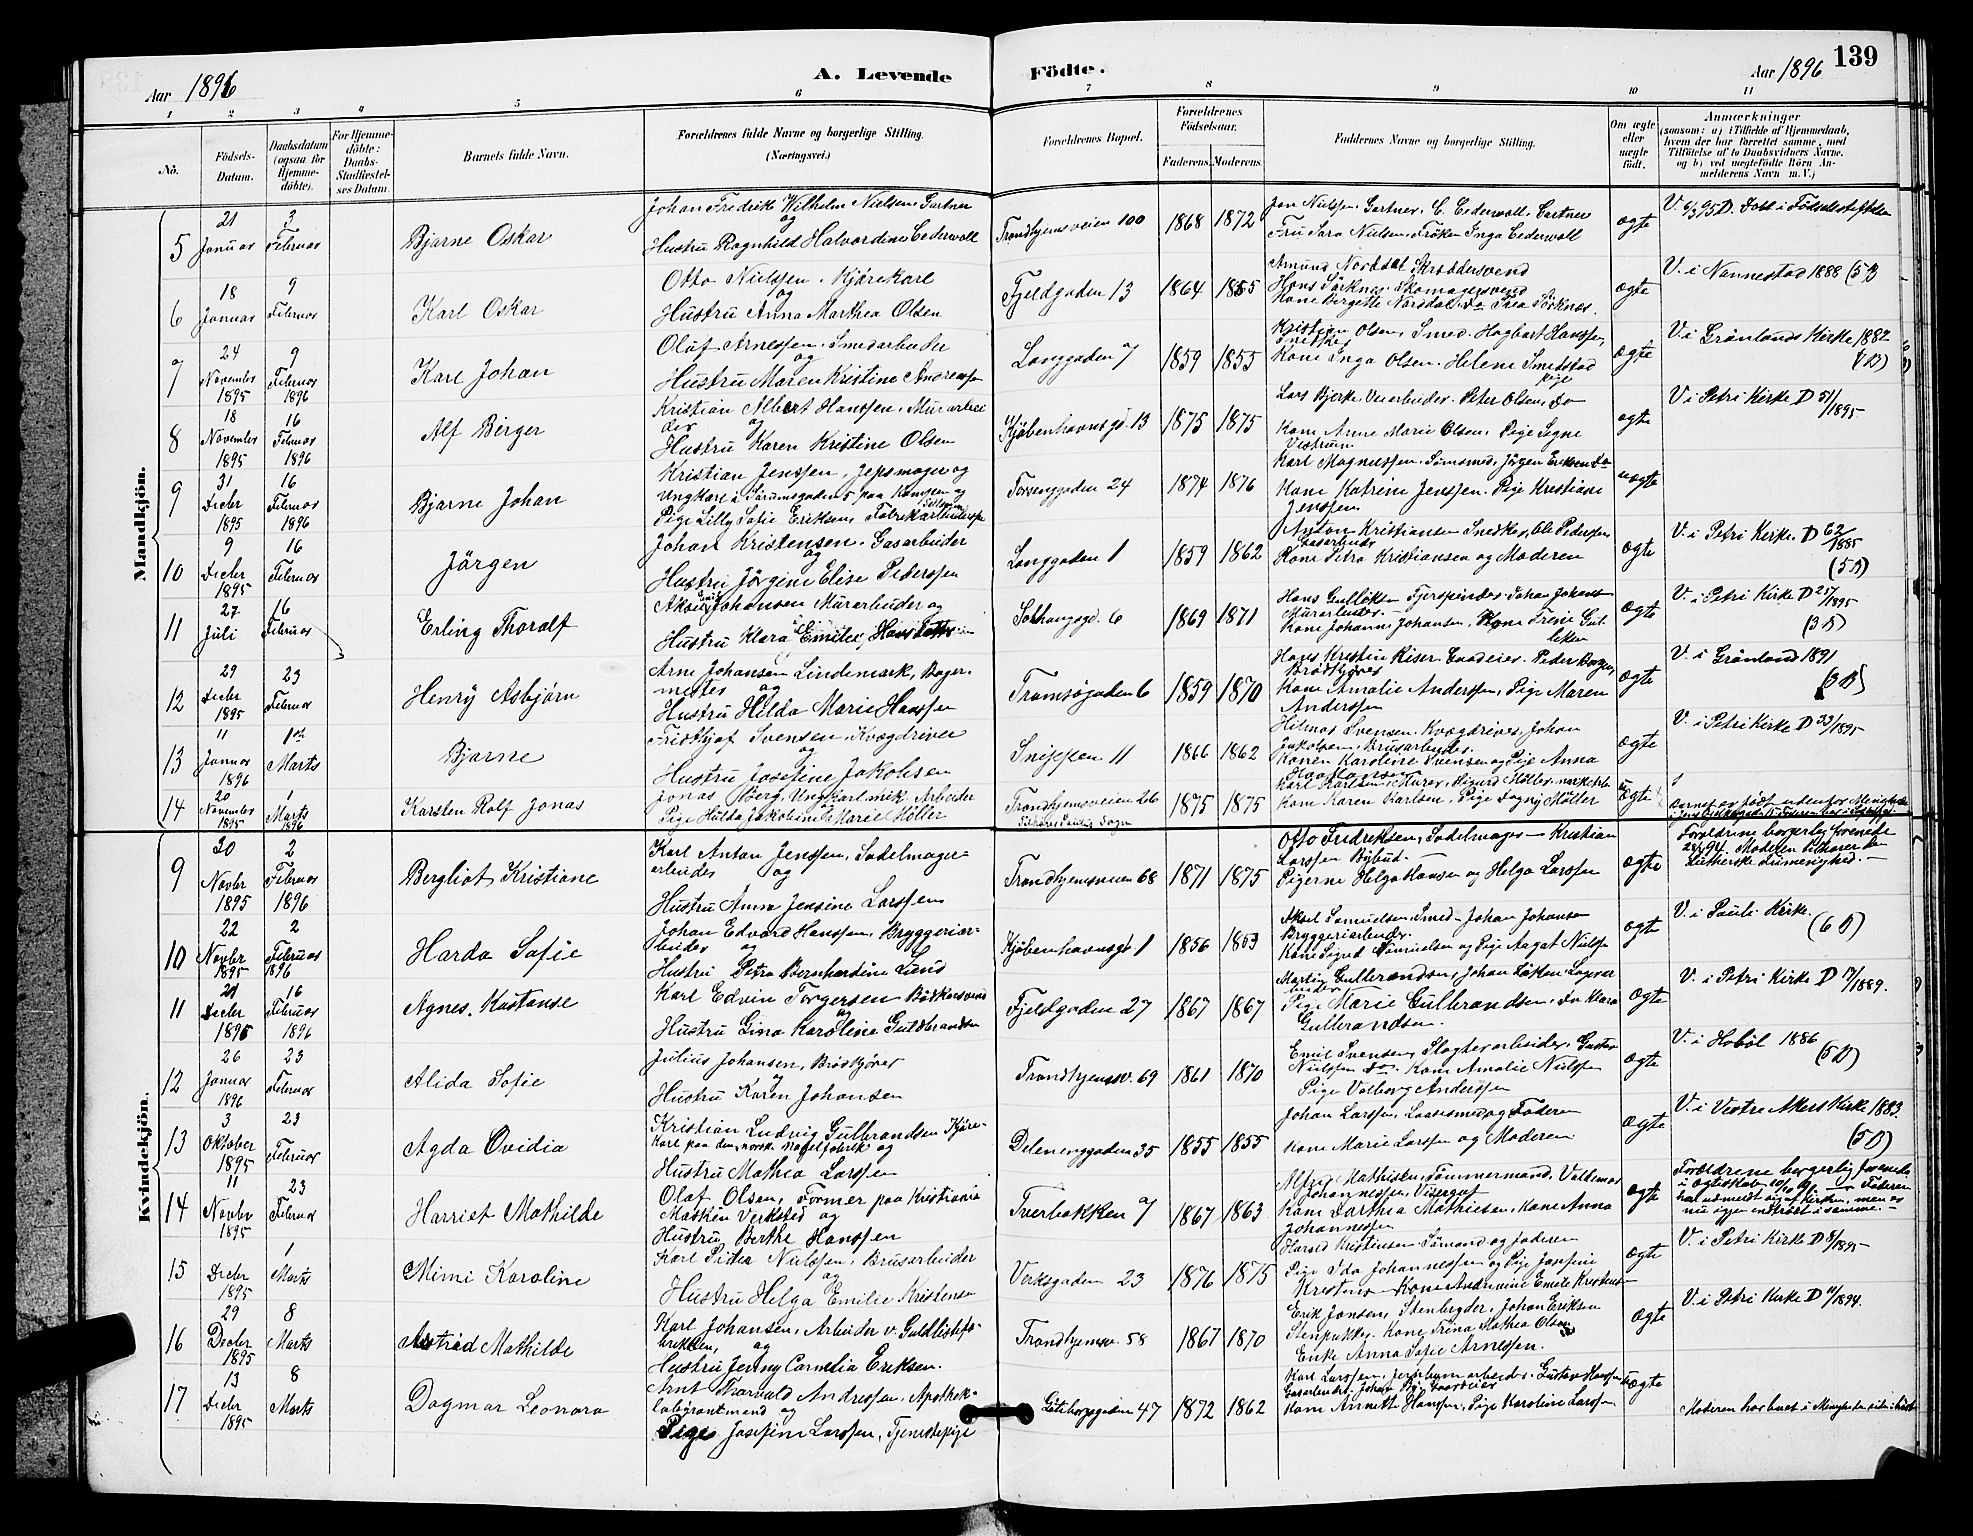 Aar 1896 A. Levende Födte. Aar 1896 139
1 2 3 4 5 6 7 8 9 10 11
No. Födsels-Datum. Daabsdatum (ogsaa for Hjemmedöbte). For Hjemmedöbte: Daabs-Stadfæstelses Datum. Barnets fulde Navn. Forældrenes fulde Navne og borgerlige Stilling. (Næringsvei.) Forældrenes Bopæl. Forældrenes Födselsaar. Faderens. Moderens. Faddernes Navne og borgerlige Stilling. Om ægte eller uægte födt. Anmærkninger (saasom: a) i Tilfælde af Hjemmedaab, hvem der har forrettet samme, med Tilföielse af to Daabsvidners Navne, og b) ved uægtefödte Börn Anmelderens Navn m. V.)
Mandkjön.
5 21 Januar 3 Februar Bjarne Oskar Johan Fredrik Wilhelm Nielsen, Gartner og Hustru Ragnhild Halvordine Cederwall Trondhjemsveien 100 1868 1872 Jon Nielsen, Gartner, C. Cederwall, Gartner Fru Sara Nielsen, Fröken Inga Cederwall ægte
6 18 Januar 9 Februar Karl Oskar Otto Nielsen, Kjörekarl og Hustru Anna Marthea Olsen Fjeldgaden 13 1864 1865 Amund Nordal, Skræddersvend Hans Sörknes, Skomagersvend Kone Bergette Norddal, do Thea Sörknes. ægte V. i Nannestad 1888 (5 B)
7 24 November 1895 9 Februar 1896 Karl Johan Olaf Arnessen, Smedarbeider og Hustru Maren Kristine Andreassen Langgaden 7 1859 1855 Kristian Olsen, Smed, Hagbart Hanssen, Snedker Kone Inga Olsen, Helene Smedstad pige ægte V. i Grönlands Kirke 1882 (1 B)
8 18 November 1895 16 Februar 1896 Alf Birger Kristian Albert Hanssen, Murarbeider og Hustru Karen Kristine Olsen Kjöbenhavnsgd. 13 1875 1875 Lars Bjerke, Veiarbeider, Peter Olsen, do Kone Anne Marie Olsen, Pige Signe Vestrum ægte V. i Petri Kirke D 51/1895
9 31 Decbr 1895 16 Februar 1896 Bjarne Johan Kristian Jenssen, Jepsmager og Ungkarl i Sörumsgaden 5 paa Kampen og Pige Lilly Sofie Eriksen, Fabrikarbeiderske Torvenggaden 24 1874 1876 Karl Magnussen, Sömsmed, Jörgen Eriksen do Kone Katrine Jenssen, Pige Kristiane Jenssen uægte
10 9 Decbr 1895 16 Februar Jörgen Johan Kristensen, Gasarbeider og Hustru Jörgine Elise Pederssen Langgaden 1 1859 1862 Anton Kristiansen Snedker, Ole Pederssen Gasarbeider Kone Petra Kristiansen og Moderen ægte V. i Petri Kirke D 62/1885 (5 B)
11 27 Juli 16 Februar Erling Thoralf Aksel Johansen Murarbeider og Hustru Klara Emilie Sohaugsgd. 6 1869 1871 Hans Gulliksen, Johan Johansen Murarbeider. Kone Johanne Johansen, Kone Trine Gulliksen ægte V. i Petri Kirke D 25/1895 (3 B)
12 29 Decbr 1895 23 Februar Henry Asbjörn Arne Johansen Lindemark, Bagermester og Hustru Hilda Marie Hanssen Tromsögaden 6 1859 1870 Hans Kristian Riser, Gaardeier, Peder Borgen, Brödkjörer Kone Amalie Anderssen, Pige Maren Anderssen ægte V. i Grönland 1891 (3 B)
13 11 Januar 1896 1ste Marts Bjarne Fridthjof Svensen, Kvægdriver og Hustru Josefine Jakobsen Snippen 11 1866 1862 Hilmar Svensen, Kvægdriver, Johan Jakobsen, Brusarbeider. Konen Karoline Svensen og Pige Anna ægte V. i Petri Kirke D 33/1895
14 20 November 1895 1 Marts 1896 Karsten Rolf Jonas Jonas Berg, Ungkarl, mek. Arbeider Pige Hulda Jakobine Marie Möller Trondhjemsveien 26 1875 1875 Karl Karlsen, Murer, Sigurd Möller, mek. Arb. Kone Karen Karlsen, Pige Dagny Möller uægte
Kvindekjön.
9 20 Novbr 1895 2 Februar 1896 Bergliot Kristiane Karl Anton Jenssen, Sadelmagerarbeider og Hustru Anna Jensine Larssen Trondhjemsveien 68 1871 1875 Otto Fredriksen, Sadelmager – Kristian Larssen Bybud. Pigerne Helga Hansen og Helga Larssen ægte Forældrene borgerlig forenede
10 22 Novbr 1895 2 Februar 1896 Harda Sofie Johan Edvard Hanssen, Bryggeriarbeider og Hustru Petra Bernhardine Lund Kjöbenhavnsgd. 1 1856 1853 Aksel Samuelsen, Smed – Johan Johansen Bryggeriarbeider. Kone Sigrid Samuelsen og Pige Aagot Nielsen ægte V. i Pauli Kirke. (6 B)
11 21 Decbr 1895 16 Februar 1896 Agnes Kostanse Karl Edvin Torgersen Bödkersvend og Hustru Gina Karoline Guldbrandsen Fjeldgaden 27 1867 1867 Martin Gulbrandsen, Johan Pige Marie Gulbrandsen, do Klara Gulbrandsen. ægte V. i Petri Kirke D 17/1889.
12 26 Januar 1896 23 Februar Alida Sofie Julius Johansen, Brödkjörer og Hustru Karen Johansen Trondhjemsv. 69 1861 1870 Emil Svensen, Slagterarbeider, Gustav Nielsen do. Kone Amalie Nielsen Pige Valborg Anderssen ægte V. i Hobøl 1886 (5 B)
13 3 Oktober 1895 23 Februar Agda Ovidia Kristian Ludvig Gulbrandsen Kjörekarl paa den norske Nagelfabrik og Hustru Mathea Larssen Delenenggaden 35 1855 1855 Johan Larssen, Laasesmed og Faderen Kone Marie Larssen og Moderen ægte V. i Vestre Akers Kirke 1883. (5 B)
14 11 Novbr 1895 23 Februar Harriet Mathilde Olaf Olsen, Former paa Kristiania Maskin Verksted og Hustru Berthe Hanssen Tverbakken 7 1867 1863 Alfred Mathisen, Tömmermand, Valdemar Johannessen, Visergut Kone Dorthea Mathiesen, Kone Anna Johannessen ægte Forældrene borgerlig forenede i Ægteskab Faderen har udmeldt sig af Kirken, men er nu igjen indtraadt i samme. –
15 1 Decbr 1895 1 Marts Mimi Karoline Karl Peder Nielsen, Brusarbeider og Hustru Helga Emilie Kristensen Verksgaden 23 1876 1875 Harald Kristensen Sömand og Faderen Pige Ida Johannessen og Pige Josefine Kristensen – Kone Andrine Emilie Kristensen ægte V. i Petri Kirke D 8/1895
16 29 Decbr 1895 8 Marts Astrid Mathilde Karl Johansen, Arbeider v. Guldlistefabrikken, og Hustru Jenny Cornelia Eriksen. Trondhjemsv. 58 1867 1870 Erik Jonsen, Stenbryder, Johan Eriksen Stenpukker. Kone Trina Mathea Olsen Enke Anna Sofie Arnessen. ægte V. i Petri Kirke D 11/1894.
17 13 Decbr 1895 8 Marts Dagmar Leonora Arnt Thorvald Andressen, Apotheklaborantmand og Pige Josefine Larssen, Tjenestepige Göteborggaden 47 1872 1862 Karl Larssen, Jernbanearbeider, Gustav Hanssen Gasarbeider, Johan Gaardeier Kone Annette Hanssen, Pige Karoline Larssen uægte Moderen har boet i Menigheden siden